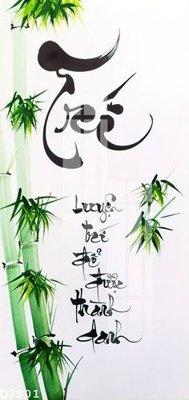 Trí
Luyện
trí
để
được
thành
danh
07901